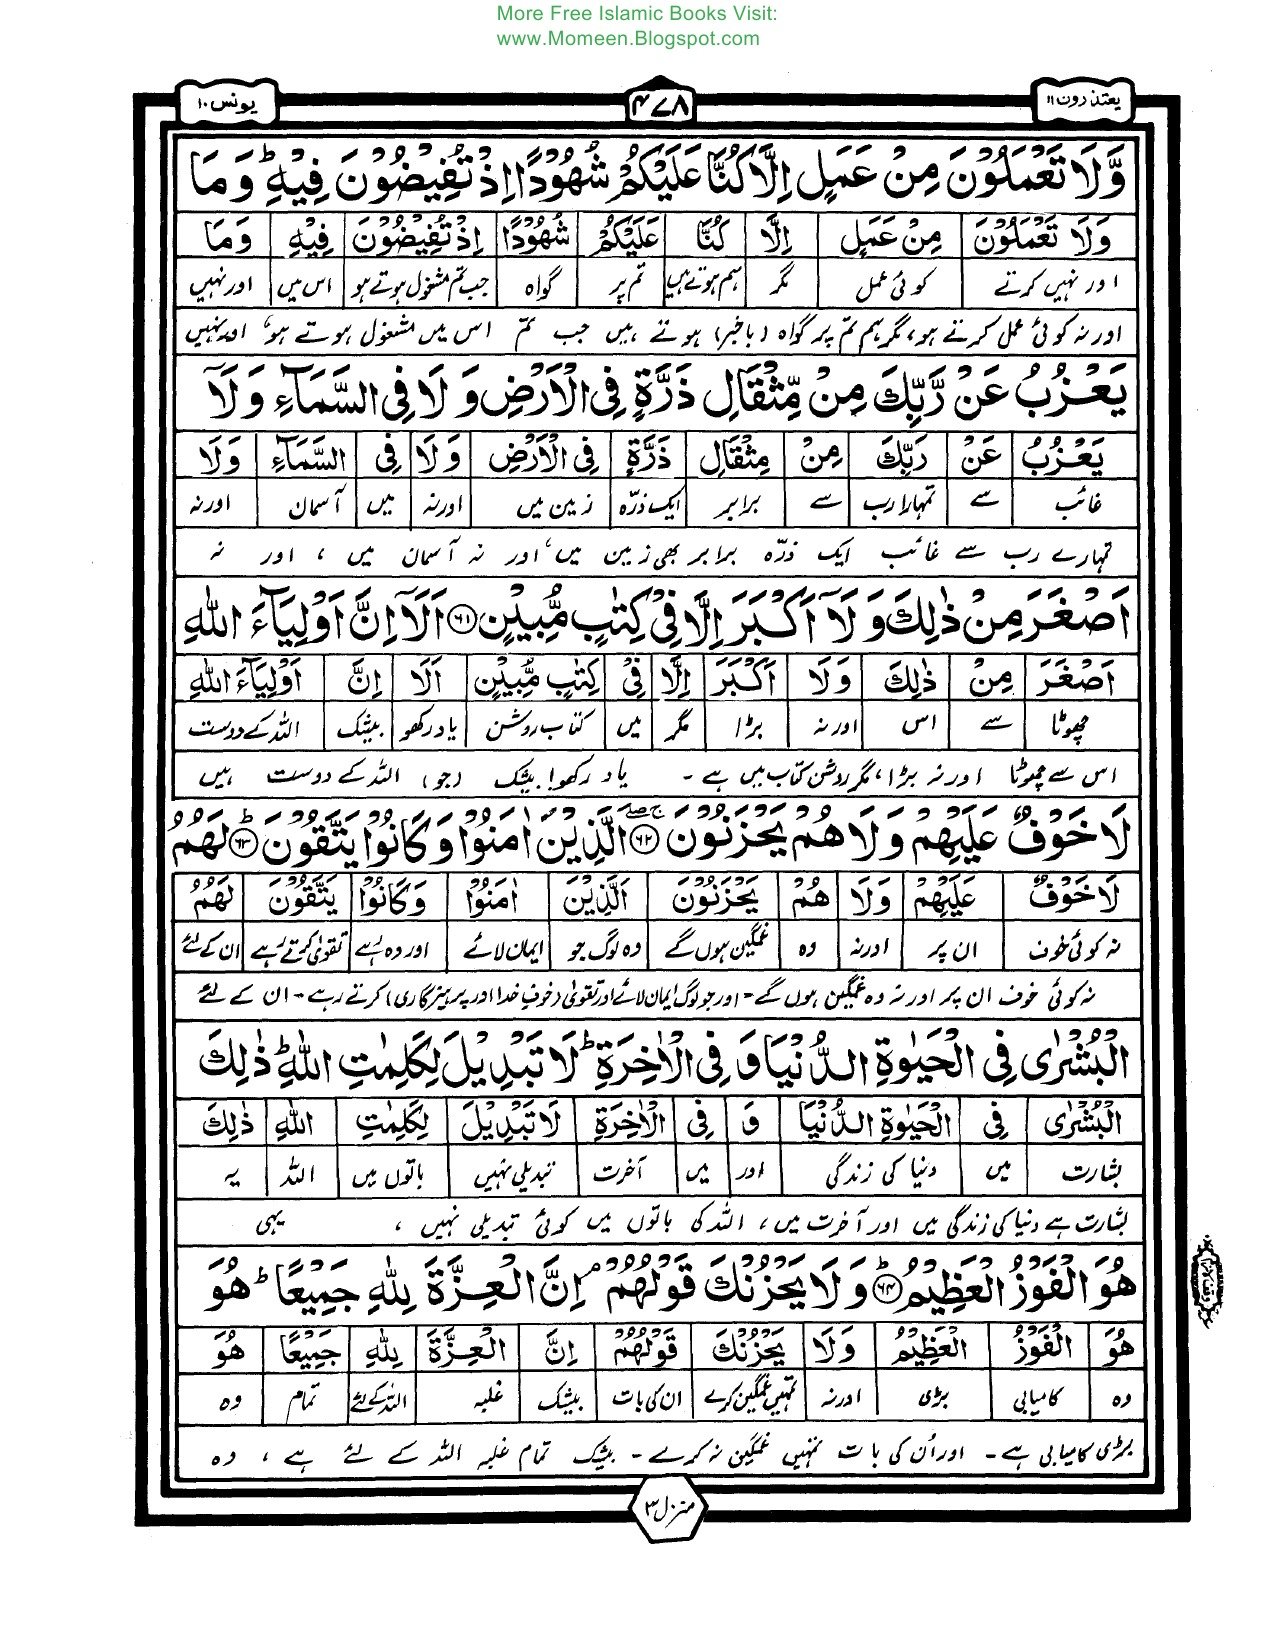 More Free Islamic Books Visit:
www.Momeen.Blogspot.com
یعتذرون ۱۱ ۴۷۸ یونس ۱۰
وَّلَا تَعْمَلُوْنَ مِنْ عَمَلٍ اِلَّا كُنَّا عَلَيْكُمْ شُهُوْدًا اِذْ تُفِيْضُوْنَ فِيْهِ ؕ وَ مَا
وَلَا تَعْمَلُوْنَ مِنْ عَمَلٍ اِلَّا كُنَّا عَلَيْكُمْ شُهُوْدًا اِذْ تُفِيْضُوْنَ فِيْهِ وَمَا
اور نہیں کرتے کوئی عمل مگر ہم ہوتے ہیں تم پر گواہ جب تم مشغول ہوتے ہو اس میں اور نہیں
اور نہ کوئی عمل کرتے ہو، مگر ہم تم پر گواہ (باخبر) ہوتے ہیں جب تم اس میں مشغول ہوتے ہو، اور نہیں
يَعْزُبُ عَنْ رَّبِّكَ مِنْ مِّثْقَالِ ذَرَّةٍ فِي الْاَرْضِ وَ لَا فِي السَّمَآءِ وَ لَاۤ
يَعْزُبُ عَنْ رَبِّكَ مِنْ مِثْقَالِ ذَرَّةٍ فِي الْاَرْضِ وَلَا فِي السَّمَآءِ وَلَا
غائب سے تمہارا رب سے برابر ایک ذرّہ زمین میں اور نہ میں آسمان اور نہ
تمہارے رب سے غائب ایک ذرّہ برابر بھی زمین میں، اور نہ آسمان میں، اور نہ
اَصْغَرَ مِنْ ذٰلِكَ وَ لَاۤ اَكْبَرَ اِلَّا فِيْ كِتٰبٍ مُّبِيْنٍ ۝۶۱ اَلَاۤ اِنَّ اَوْلِيَآءَ اللّٰهِ
اَصْغَرَ مِنْ ذٰلِكَ وَلَا اَكْبَرَ اِلَّا فِيْ كِتٰبٍ مُّبِيْنٍ اَلَا اِنَّ اَوْلِيَآءَ اللّٰهِ
چھوٹا سے اس اور نہ بڑا مگر میں کتاب روشن یاد رکھو بیشک اللہ کے دوست
اس سے چھوٹا اور نہ بڑا، مگر روشن کتاب میں ہے۔ یاد رکھو! بیشک (جو) اللہ کے دوست ہیں
لَا خَوْفٌ عَلَيْهِمْ وَ لَا هُمْ يَحْزَنُوْنَ ۝۶۲ الَّذِيْنَ اٰمَنُوْا وَ كَانُوْا يَتَّقُوْنَ ۝۶۳ؕ لَهُمُ
لَا خَوْفٌ عَلَيْهِمْ وَلَا هُمْ يَحْزَنُوْنَ الَّذِيْنَ اٰمَنُوْا وَكَانُوْا يَتَّقُوْنَ لَهُمُ
نہ کوئی خوف ان پر اور نہ وہ غمگین ہوں گے وہ لوگ جو ایمان لائے اور وہ رہے تقویٰ کرتے رہے ان کے لئے
نہ کوئی خوف ان پر اور نہ وہ غمگین ہوں گے۔ اور جو لوگ ایمان لائے اور تقویٰ (خوفِ خدا اور پرہیزگاری) کرتے رہے۔ ان کے لئے
الْبُشْرٰى فِي الْحَيٰوةِ الدُّنْيَا وَ فِي الْاٰخِرَةِ ؕ لَا تَبْدِيْلَ لِكَلِمٰتِ اللّٰهِ ؕ ذٰلِكَ
الْبُشْرٰى فِي الْحَيٰوةِ الدُّنْيَا وَ فِي الْاٰخِرَةِ لَا تَبْدِيْلَ لِكَلِمٰتِ اللّٰهِ ذٰلِكَ
بشارت میں دنیا کی زندگی اور میں آخرت تبدیلی نہیں باتوں میں اللہ یہ
بشارت ہے دنیا کی زندگی میں اور آخرت میں، اللہ کی باتوں میں کوئی تبدیلی نہیں، یہی
هُوَ الْفَوْزُ الْعَظِيْمُ ۝۶۴ؕ وَ لَا يَحْزُنْكَ قَوْلُهُمْ ۘ اِنَّ الْعِزَّةَ لِلّٰهِ جَمِيْعًا ؕ هُوَ
هُوَ الْفَوْزُ الْعَظِيْمُ وَلَا يَحْزُنْكَ قَوْلُهُمْ اِنَّ الْعِزَّةَ لِلّٰهِ جَمِيْعًا هُوَ
وہ کامیابی بڑی اور نہ تمہیں غمگین کرے ان کی بات بیشک غلبہ اللہ کے لئے تمام وہ
بڑی کامیابی ہے۔ اور اُن کی بات تمہیں غمگین نہ کرے۔ بیشک تمام غلبہ اللہ کے لئے ہے، وہ
منزل ۳